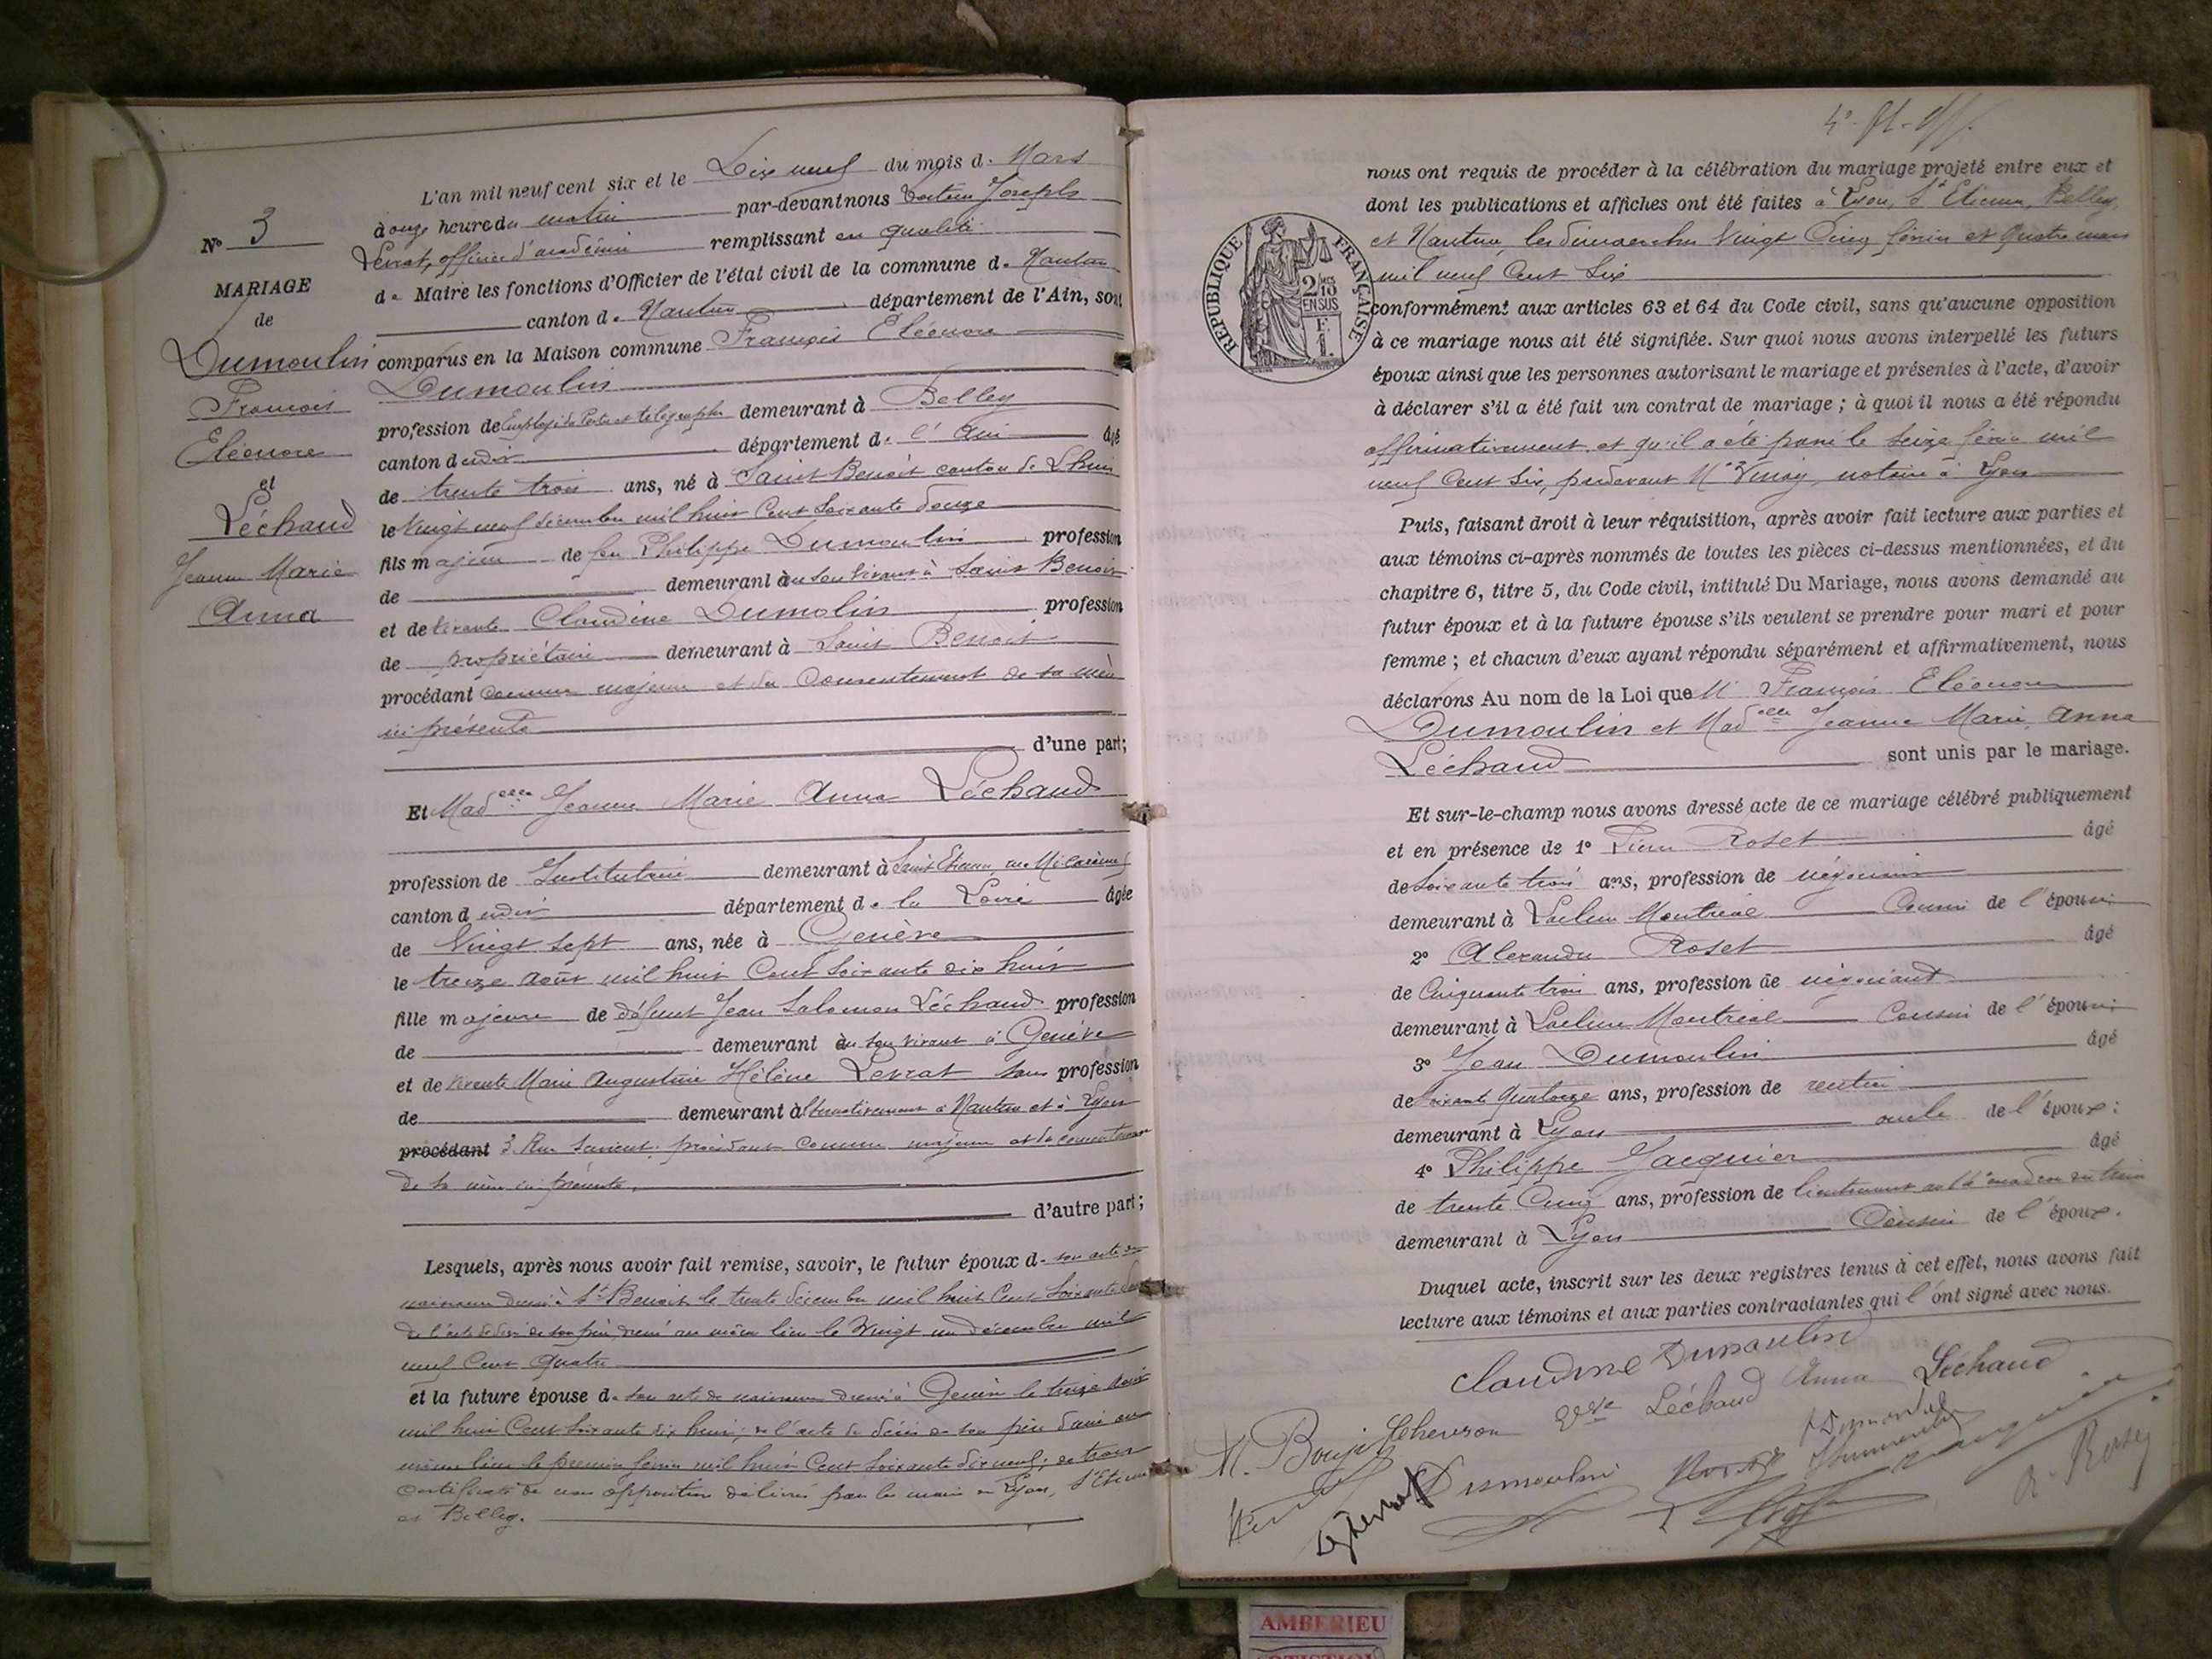 N° 3
MARIAGE
de
Dumoulin
François
Eléonore
et
Léchaud
Jeanne Marie
Anna
L'an mil neuf cent six et le Dix neuf du mois d. Mars
à onze heure du matin par-devant nous Joseph
Levrat, officier d'académie remplissant en qualité
de Maire les fonctions d'Officier de l'état civil de la commune d. Nantua
canton d. Nantua département de l'Ain, sont
comparus en la Maison commune François Eléonore
Dumoulin
profession de Employé des Postes et télégraphes demeurant à Belley
canton dudit département d. l'Ain âgé
de trente trois ans, né à Saint Benoit canton de Lhuis
le Vingt neuf décembre mil huit Cent Soixante douze
fils majeur de feu Philippe Dumoulin profession
de demeurant à en son vivant à Saint Benoit
et de vivante Claudine Dumolin profession
de propriétaire demeurant à Saint Benoit
procédant comme majeur et du Consentement de sa mère
ici présente
d'une part;
Et Madelle Jeanne Marie Anna Léchaud
profession de Institutrice demeurant à Saint Etienne, rue Mi-carême
canton dudit département d. la Loire âgée
de Vingt sept ans, née à Genève
le treize août mil huit Cent Soixante dix huit
fille majeure de défunt Jean Salomon Léchaud profession
de demeurant à en son vivant à Genève
et de vivante Marie Augustine Hélène Levrat sans profession
de demeurant alternativement à Nantua et à Lyon
procédant 3 Rue procédant comme majeure et du consentement
de sa mère ici présente,
d'autre part;
Lesquels, après nous avoir fait remise, savoir, le futur époux d. son acte de
naissance dressé à St Benoit le trente décembre mil huit Cent Soixante douze
de l'acte de décès de son père, dressé au même lieu le Vingt un décembre mil
neuf Cent quatre
et la future épouse d. son acte de naissance dressé à Genève le treize août
mil huit Cent soixante dix huit; de l'acte de décès de son père dressé au
même lieu le premier février mil huit Cent Soixante dix neuf; de trois
certificats de non opposition délivrés par les maires de Lyon, St Etienne
et Belley.
nous ont requis de procéder à la célébration du mariage projeté entre eux et
dont les publications et affiches ont été faites à Lyon, St Etienne, Belley,
et Nantua, les dimanches Vingt Cinq février et quatre mars
mil neuf Cent Six
RÉPUBLIQUE FRANÇAISE
2/10 EN SUS
conformément aux articles 63 et 64 du Code civil, sans qu'aucune opposition
à ce mariage nous ait été signifiée. Sur quoi nous avons interpellé les futurs
époux ainsi que les personnes autorisant le mariage et présentes à l'acte, d'avoir
à déclarer s'il a été fait un contrat de mariage; à quoi il nous a été répondu
affirmativement et qu'il a été passé le seize février mil
neuf Cent Six, pardevant Me Vinay, notaire à Lyon
Puis, faisant droit à leur réquisition, après avoir fait lecture aux parties et
aux témoins ci-après nommés de toutes les pièces ci-dessus mentionnées, et du
chapitre 6, titre 5, du Code civil, intitulé Du Mariage, nous avons demandé au
futur époux et à la future épouse s'ils veulent se prendre pour mari et pour
femme; et chacun d'eux ayant répondu séparément et affirmativement, nous
déclarons Au nom de la Loi que M. François Eléonore
Dumoulin et Madelle Jeanne Marie Anna
Léchaud sont unis par le mariage.
Et sur-le-champ nous avons dressé acte de ce mariage célébré publiquement
et en présence de 1° Pierre Roset âgé
de Soixante trois ans, profession de négociant
demeurant à Montréal Cousin de l'épouse;
2° Alexandre Roset âgé
de Cinquante trois ans, profession de négociant
demeurant à Montréal Cousin de l'épouse;
3° Jean Dumoulin âgé
de soixante quatorze ans, profession de rentier
demeurant à Lyon oncle de l'époux;
4° Philippe Jacquier âgé
de trente Cinq ans, profession de lieutenant au 14e escadron du train
demeurant à Lyon Cousin de l'époux.
Duquel acte, inscrit sur les deux registres tenus à cet effet, nous avons fait
lecture aux témoins et aux parties contractantes qui l'ont signé avec nous.
Claudine Dumoulin
Vve Léchaud Anna Léchaud
Dumoulin
AMBERIEU